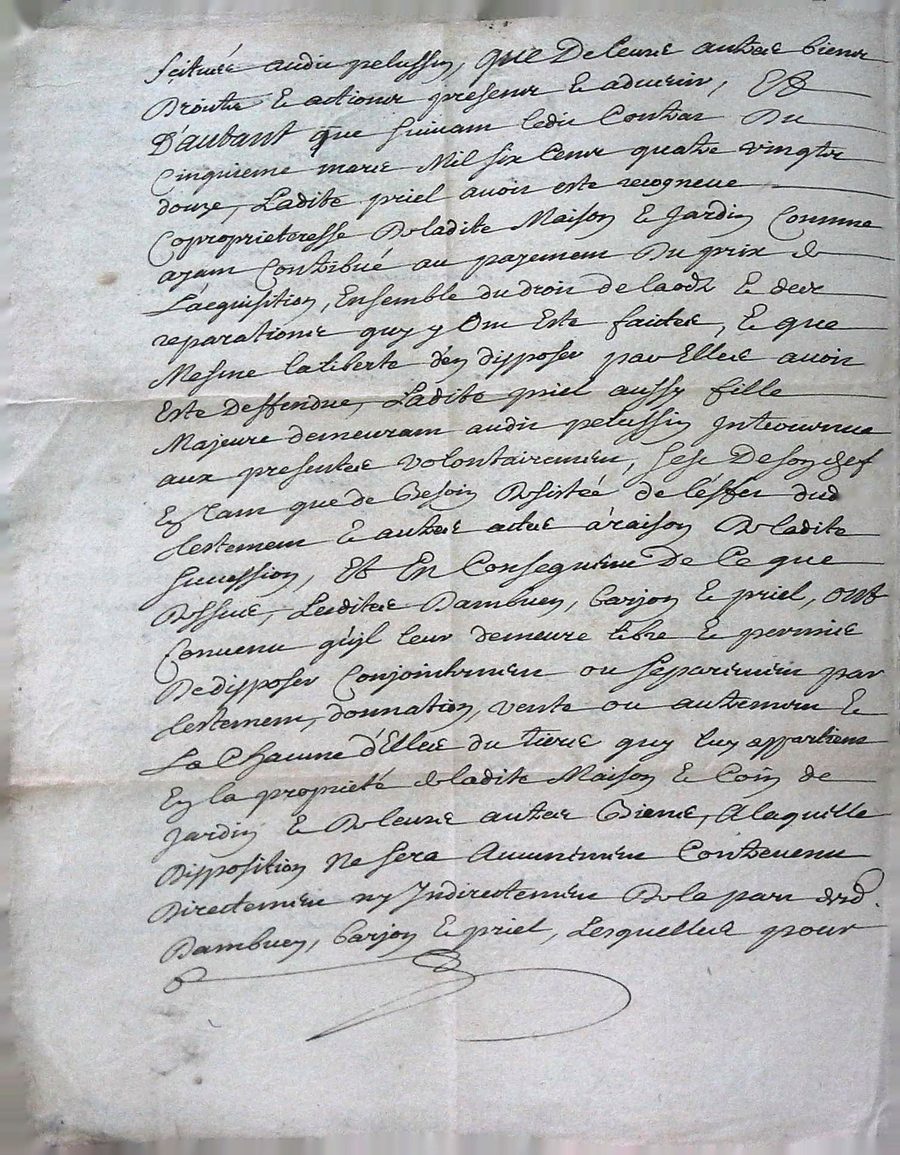 scituée audit pelussin, que De leurs autres biens
Droits & actions presens & aduenir, Et
D'autant que suiuant ledit Contrat Du
Cinquieme mars Mil six Cens quatre vingts
douze, Ladite priel auoit esté recogneue
Coproprieteresse De ladite Maison & Jardin Comme
ayant Contribué au payement Du prix de
L'acquisition, Ensemble du droit de laods & des
reparations quy y Ont Esté faites, & que
Mesme la liberté d'en disposer par Elles auoit
Esté Deffendue, Ladite priel aussy fille
Majeure demeurant audit pelussin Interuenue
aux presentes volontairement, s'est De son chef
En tant que de Besoin Desistée de l'effet dud
testement & autres actes à raison De ladite
Succession, Et En Consequence De Ce que
Dessus, Lesdites Dambuen, Carjon & priel, ont
Conuenu qu'il leur demeure libre & permis
De disposer Conjointement ou separement par
testement, donnation, vente ou autrement &
La Chacune d'Elles du tiers quy luy appartient
En la proprieté de ladite Maison & Coin de
Jardin & De leurs autres Biens, A laquelle
Disposition Ne sera Aucunement Contreuenu
Directement ny Indirectement De la part desd.
Dambuen, Carjon & priel, Lesquelles pour